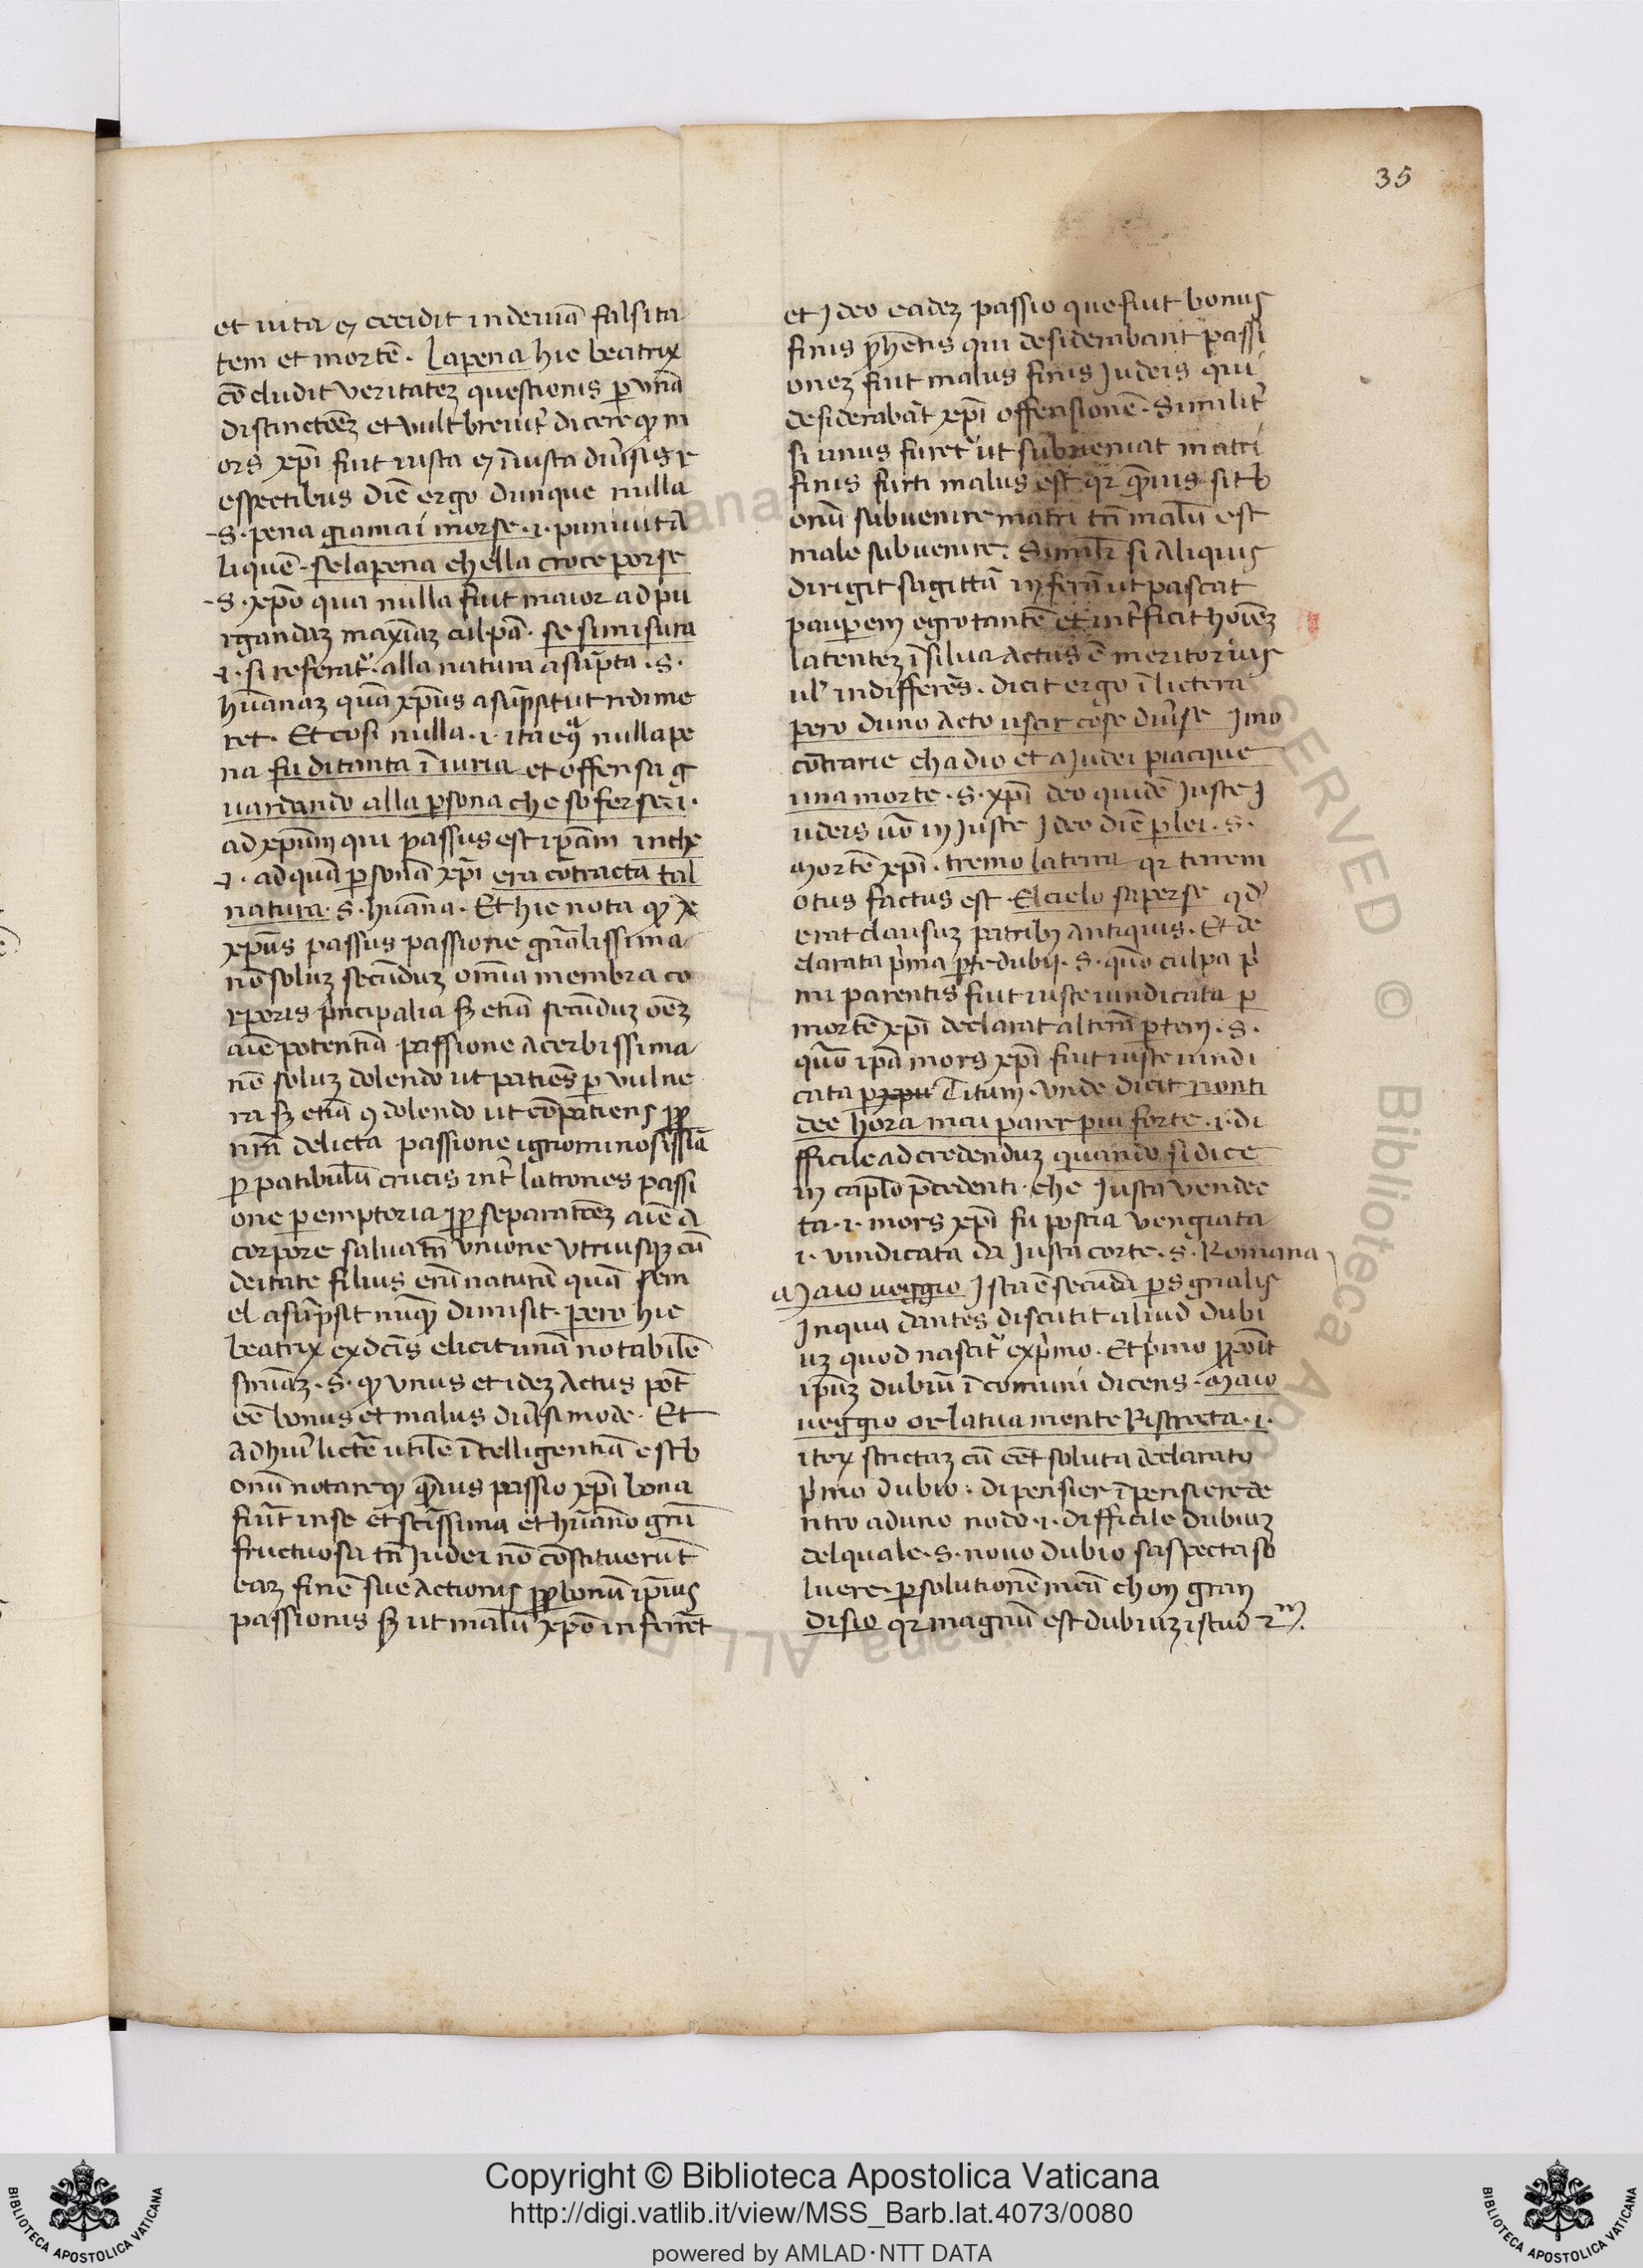 35
et uita ⁊ cecidit in deuiā falsita
tem et mortē. La pena hic beatrix
cōcludit veritatez questionis p̱ unā
distinctōez et vult breuit̓ dicere ꝙ m
ors xp̄i fuit iusta ⁊ īiusta diu̓sis r
espectibus diē ergo dunque nulla
.S. pena giamai morse .i. puniuit a
liquē. se la pena ch ella croce porse
.S. xp̄o qua nulla fuit maior ad pu
rgandaz maxīaz culpā. se si misura
.i. si referat̓. alla natura asūpta .S.
hūanaz quā xp̄us asūpsit ut redime
ret. Et cosi nulla .i. ita eq̄ nulla pe
na fu di tanta īiuria et offensa g
uardando alla p̱sona che sofferse .i.
ad xp̄um qui passus est ip̄am in che
.i. ad quā p̱sonā xp̄i era cōtracta tal
natura .S. hūana. Et hic nota ꝙ
xp̄us passus passione gn̄alissima
nō soluz secūduz omīa membra co
rporis p̓ncipalia sꝫ etiā secūduz oēz
aīe potentiā passione acerbissima
nē soluz dolendo ut patiēs p̱ vulne
ra sꝫ etiā ꝯdolendo ut cōpatiens ꝓp
nr̄a delicta passione ignominosissīa
p̱ patibulū crucis int̓ latrones passi
one p̱emptoria ꝓp separatōez aīe a
corpore salua tn̄ vnione vtriusqꝫ cū
deitate filius enī naturā quā sem
el asūpsit nūqꝫ dimisit. pero hic
beatrix ex dc̄is elicit unā notabilē
sn̄iaz .S. ꝙ vnus et idez actus pōt
eē bonus et malus diu̓simode. Et
ad hui̓ lictē utilē ītelligentiā est b
onū notare ꝙ q̄uis passio xp̄i bona
fuīt in se et sc̄issima et hūano gn̄i
fructuosa tn̄ Judei nō cōstituerunt
eaz finē sue actionis ꝓp bonū ip̄ius
passionis sꝫ ut malū xp̄o inferrēt
et Jdeo eadez passio que fuit bonus
finis ꝓphētis qui desiderabant passi
onez fuit malus finis Judeis qui
desiderabāt xp̄i offensionē. Similit̓
si unus furet̓ ut subueniat matri
finis furti malus est qr q̄uis sit b
onū subuenire matri tn̄ malū est
male subuenire. Similr̄ si aliquis
dirigit sagittā in ferā ut pascat
paup̱em egrotantē et int̓ficit hoīez
latentez ī silua actus ē meritorius
ul̓ indifferēs. dicit ergo ī lictera
pero duno acto uscir cose diu̓se Jmo
cōtrarie ch a dio et a Judei piacque
una morte .S. xp̄i deo quidē Juste J
udeis uō in Juste Jdeo diē p̱ lei .S.
mortē xp̄i. tremo la terra qr terrem
otus factus est. El cielo saperse qd̓
erat clausuz patribꝫ antiquis. Et de
clarata p̓ma p̱te dubij .S. quō culpa p̓
mi parentis fuit iuste uindicata p̱
mortē xp̄i declarat alterā p̱tem .S.
quō ip̄a mors xp̄i fuit iuste uindi
cata p̱ xp̄u Titum. vnde dicit non ti
dee hora mai parer piu forte .i. di
fficile ad credenduz quando si dice
in cap̄lo p̄cedenti. che Justa vendec
ta .i. mors xp̄i fu poscia vengiata
.i. vindicata da Justa corte .S. Romana
Maio ueggio Ista ē secūda p̱s gn̄alis
Jn qua dantes discutit aliud dubi
uz quod nascit̓ ex p̓mo. Et p̓mo ꝓpōit
ip̄uz dubiū ī comuni dicens. Maio
ueggio or la tua mente Ristrecta .i.
iterꝫ strictaz cū eēt soluta declarato
p̓mo dubio. di pensier ī pensiere de
ntro ad uno nodo .i. difficile dubiuz
del quale .S. nouo dubio saspecta so
luere. p̱ solutionē meā chon gran
disio qr magnū est dubiuz istud 2ᵐ.
Copyright © Biblioteca Apostolica Vaticana
http://digi.vatlib.it/view/MSS_Barb.lat.4073/0080
powered by AMLAD·NTT DATA